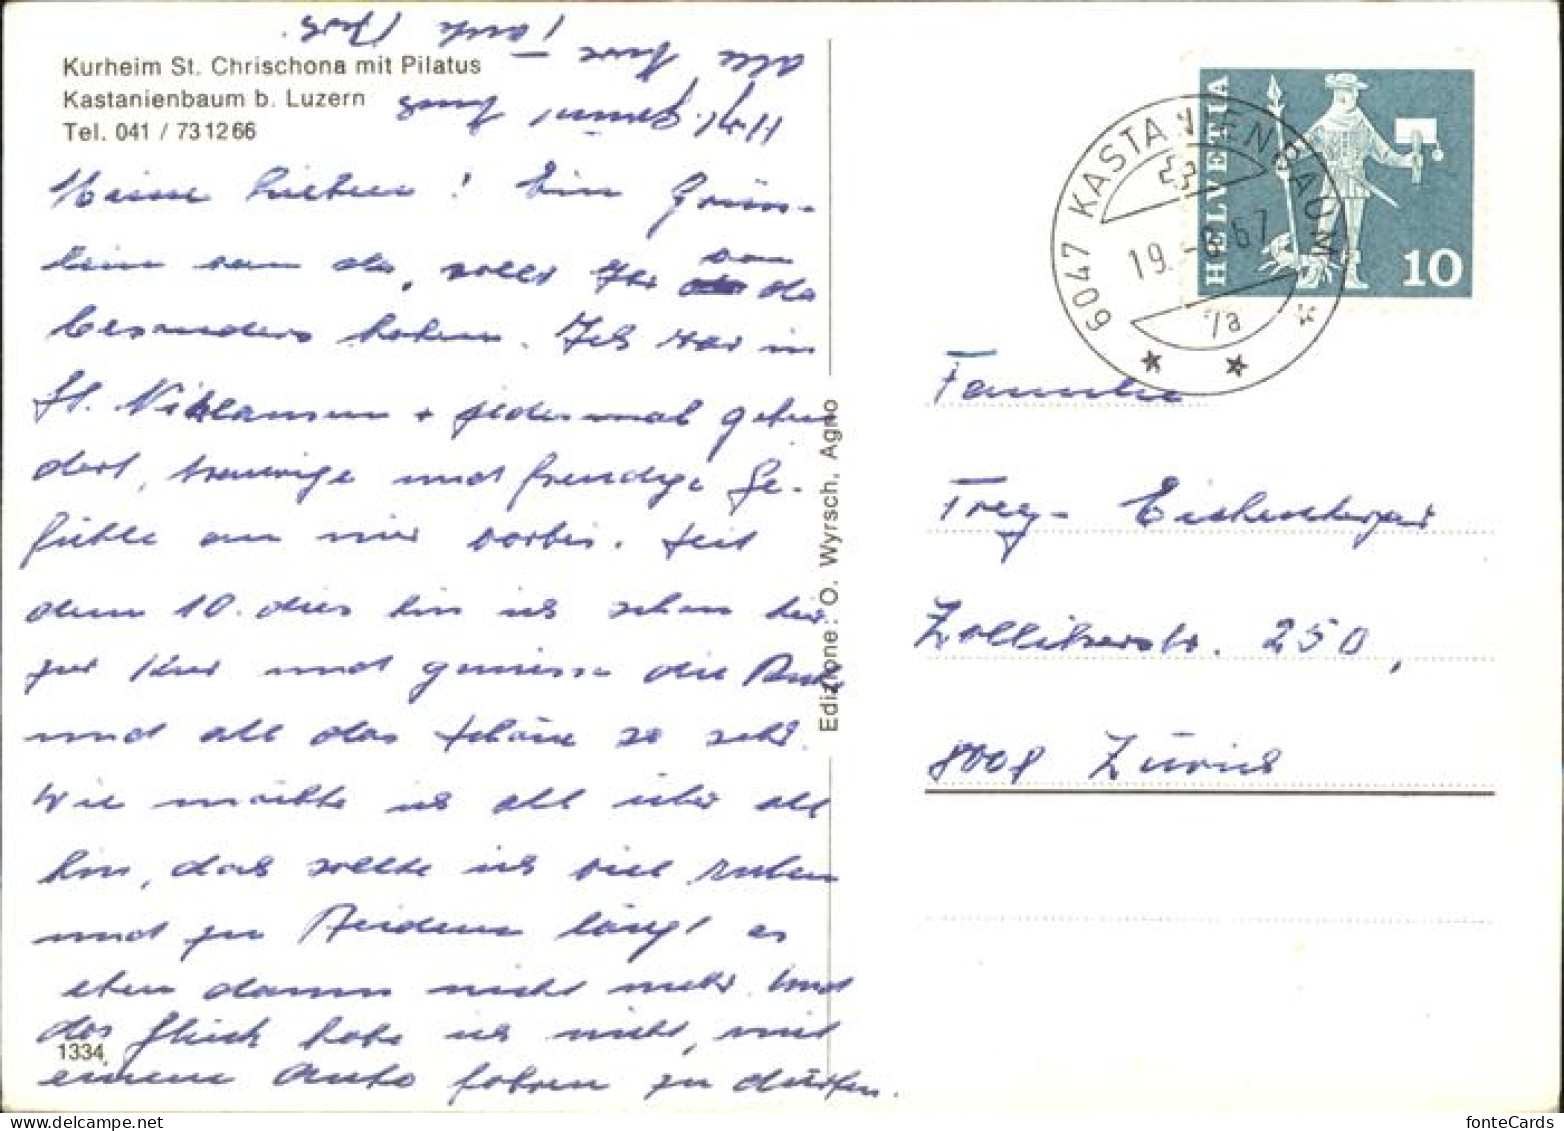 Kurheim St. Chrischona mit Pilatus
Kastanienbaum b. Luzern
Tel. 041 / 73 12 66
Meine Lieben! Ein Grüss-
lein von da, sollt Ihr von da
besonders haben. Ich war in
St. Niklausen + jedesmal gehen
dort, traurige und freudige Ge-
fühle an mir vorbei. Seit
dem 10. dies bin ich schon hier
zur Kur und geniesse die Ruhe
und all das Schöne so sehr.
Wie möchte ich all über all
hin, das sollte ich viel ruhen
und zu Beiden längt es
eben dann nicht mehr. Und
das Glück habe ich nicht, mit
einem Auto fahren zu dürfen.
Hrzl. Grüsst Euch
alle Eure Tante
1334
Edizione: O. Wyrsch, Agno
HELVETIA
10
6047 KASTANIENBAUM
19. 67
Familie
Frey- Eichenberger
Zollikerstr. 250,
8008 Zürich
fonteCards
www.delcampe.net